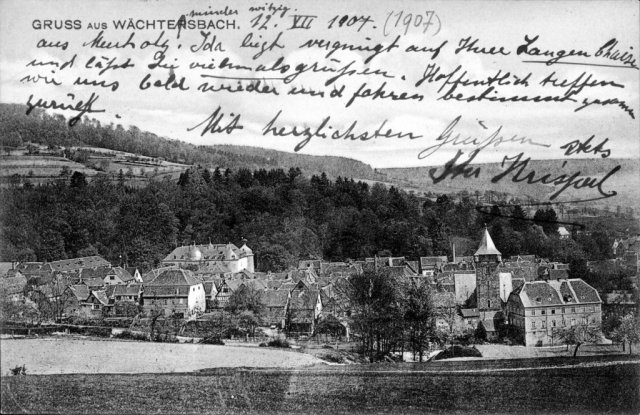 GRUSS AUS WÄCHTERSBACH.
minder witzig.
12. VII 1907. (1907)
aus Meerholz. Ida liegt vergnügt auf Ihrer Langen Chaise
und läßt Sie vielmalsgrüßen. Hoffentlich treffen
wir uns bald wieder und fahren bestimmt zusammen
zurück.
Mit herzlichsten Grüßen stets
Ihr